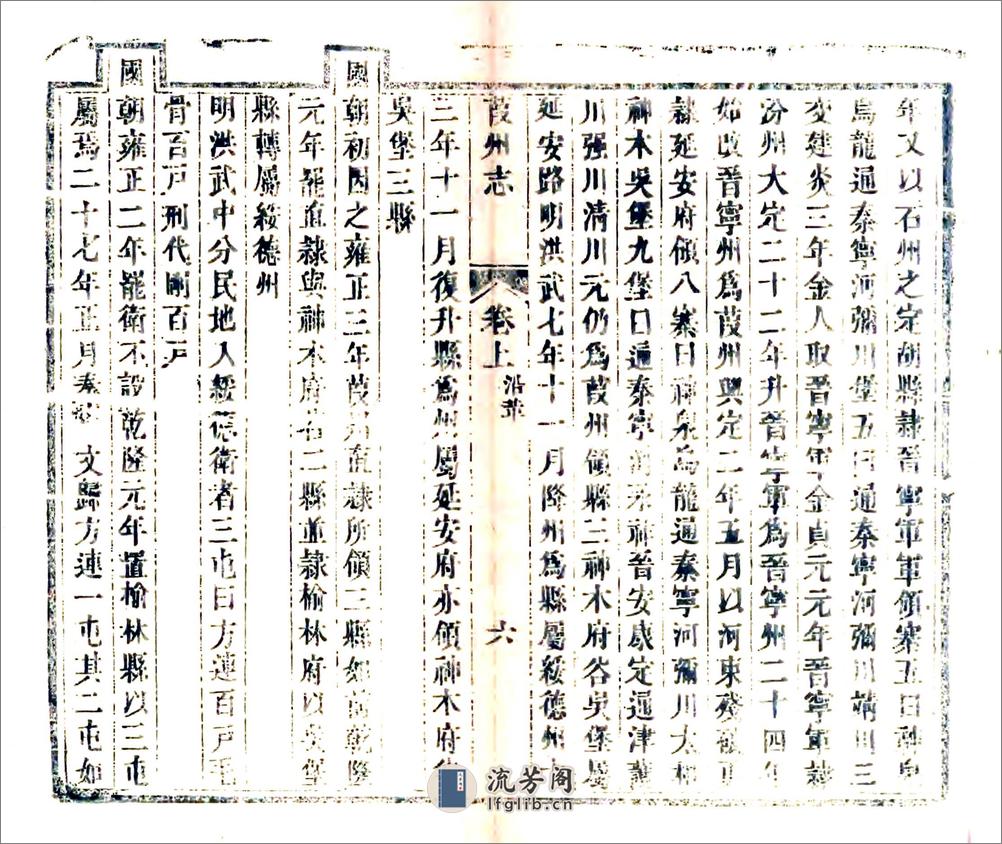 年又以石州之定胡縣隸晉寧軍軍領寨五曰神泉
烏龍通秦寧河彌川堡五曰通秦寧河彌川靖川三
交建炎三年金人取晉寧軍金貞元元年晉寧軍隸
汾州大定二十二年升晉寧軍為晉寧州二十四年
始改晉寧州為葭州興定二年五月以河東殘破
隸延安府領八寨曰神泉烏龍通秦寧河彌川大和
神木吳堡九堡曰通秦寧河彌川晉安康定通津
川强川清川元仍為葭州領縣三神木府谷吳堡屬
延安路明洪武七年十一月降州為縣屬綏德州十
葭州志 卷上 沿革 六
三年十一月復升縣為州屬延安府亦領神木府谷
吳堡三縣
國朝初因之雍正三年葭州直隸所領三縣如前乾隆
元年罷直隸與神木府谷二縣並隸榆林府以吳堡
縣轉屬綏德州
明洪武中分民地入綏德衛者三屯曰方連百戶毛
骨百戶刑代剛百戶
國朝雍正二年罷衛不設乾隆元年置榆林縣以三屯
屬焉二十七年正月奏 文歸方連一屯其二屯如
流芳阁
lfglib.cn